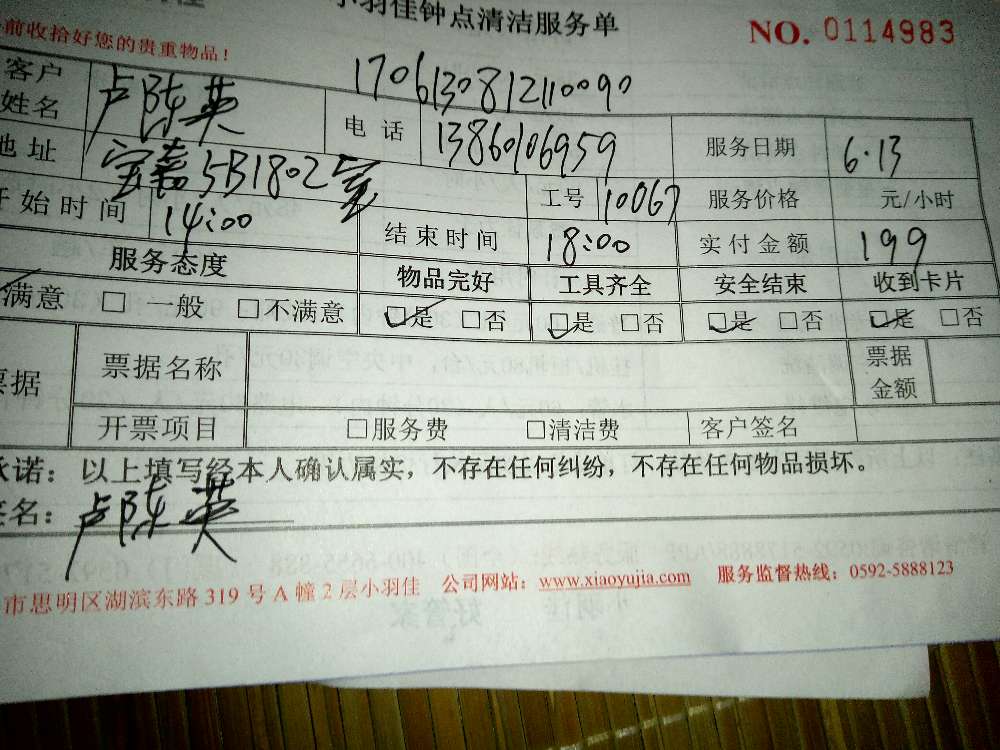 小羽佳钟点清洁服务单
NO. 0114983
前收拾好您的贵重物品！
1706130812110090
客户姓名 卢陈英 电话 13860106959 服务日期 6.13
地址 宝嘉5B1802室 工号 10067 服务价格 元/小时
开始时间 14:00 结束时间 18:00 实付金额 199
服务态度 物品完好 工具齐全 安全结束 收到卡片
满意 □ 一般 □不满意 □是 □否 □是 □否 □是 □否 □是 □否
票据 票据名称 票据金额
开票项目 □服务费 □清洁费 客户签名
承诺：以上填写经本人确认属实，不存在任何纠纷，不存在任何物品损坏。
签名：卢陈英
市思明区湖滨东路319号A幢2层小羽佳 公司网站：www.xiaoyujia.com 服务监督热线：0592-5888123